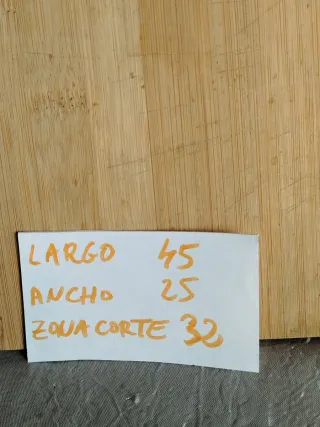 LARGO 45
ANCHO 25
ZONA CORTE 32